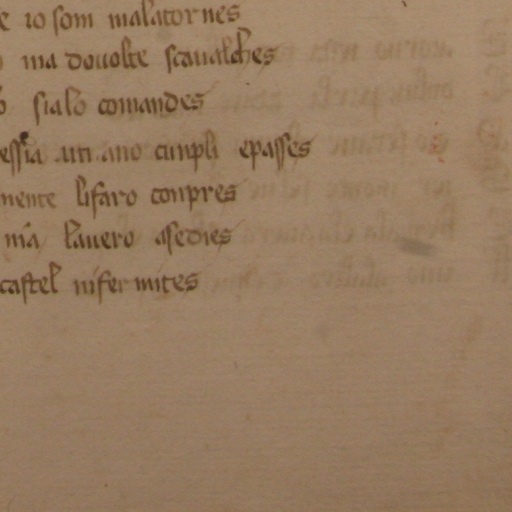 e io som malatornes
ma douolte scaualches
sialo comandes
essia un ano cunpli epasses
mente lifaro conpres
mia lauero asedies
castel nifermites